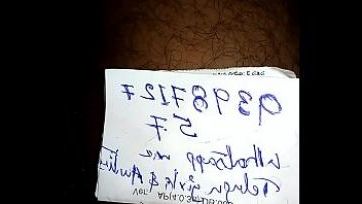 93987127
57
Whatsapp me
Telugu girls & Aunties